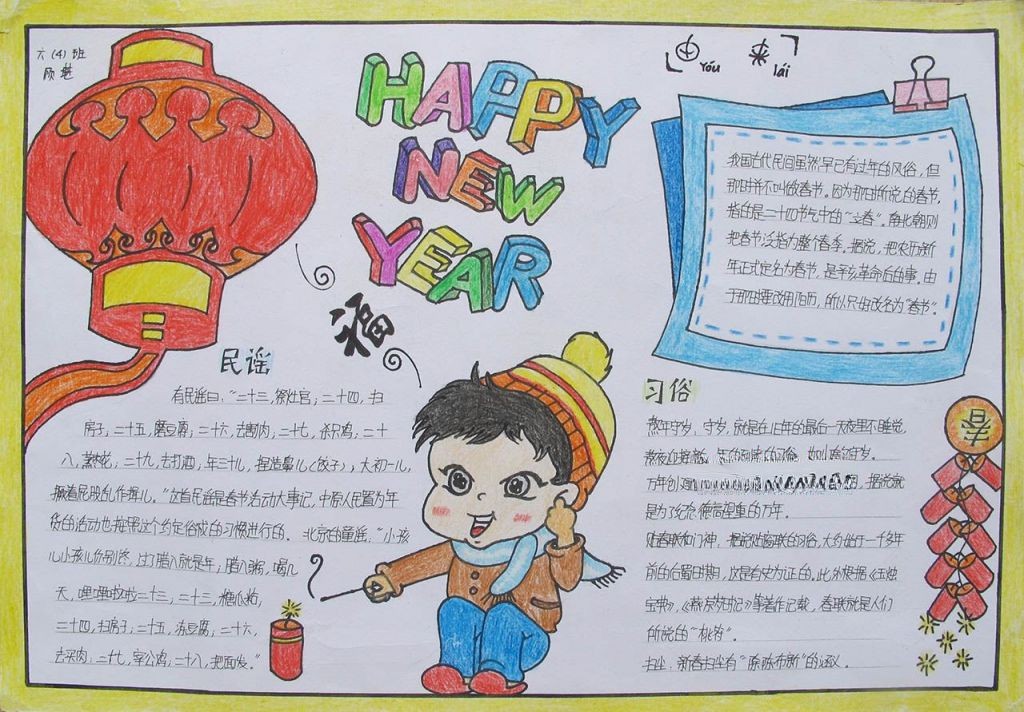 六(4)班
顾
HAPPY
NEW
YEAR
由 Yóu 来 lái
我国古代民间虽然早已有过年的风俗，但
那时并不叫做春节。因为那时所说的春节，
指的是二十四节气中的"立春"。南北朝则
把春节泛指为整个春季。据说，把农历新
年正式定名为春节，是辛亥革命后的事。由
于那时要改用阳历，所以只好改名为"春节"。
福
民谣
有民谣曰，"二十三，祭灶官；二十四，扫
房子；二十五，磨豆腐；二十六，去割肉；二十七，杀只鸡；二十
八，蒸枣花；二十九，去打酒，年三十儿，捏造鼻儿(饺子)，大初一儿，
撅着屁股乱作揖儿。"这首民谣是春节活动大事记，中原人民置办年
货的活动也按照这个约定俗成的习惯进行的。北京的童谣，"小孩
儿小孩儿你别馋，过了腊八就是年；腊八粥，喝几
天，哩哩啦啦二十三；二十三，糖瓜粘，
二十四，扫房子；二十五，冻豆腐；二十六，
去买肉；二十七，宰公鸡；二十八，把面发。"
习俗
熬年守岁，守岁，就是在旧年的最后一天夜里不睡觉，
熬夜迎接新 的习俗，
万年创 据说就
是为了纪念德高望重的万年。
贴春联和门神，据说贴春联的习俗，大约始于一千多年
前的后蜀时期，这是有史为证的。此外根据《玉烛
宝典》，《燕京 记》等著作记载，春联就是人们
所说的"桃符"。
扫尘，新春扫尘有"除陈布新"的涵义。
春